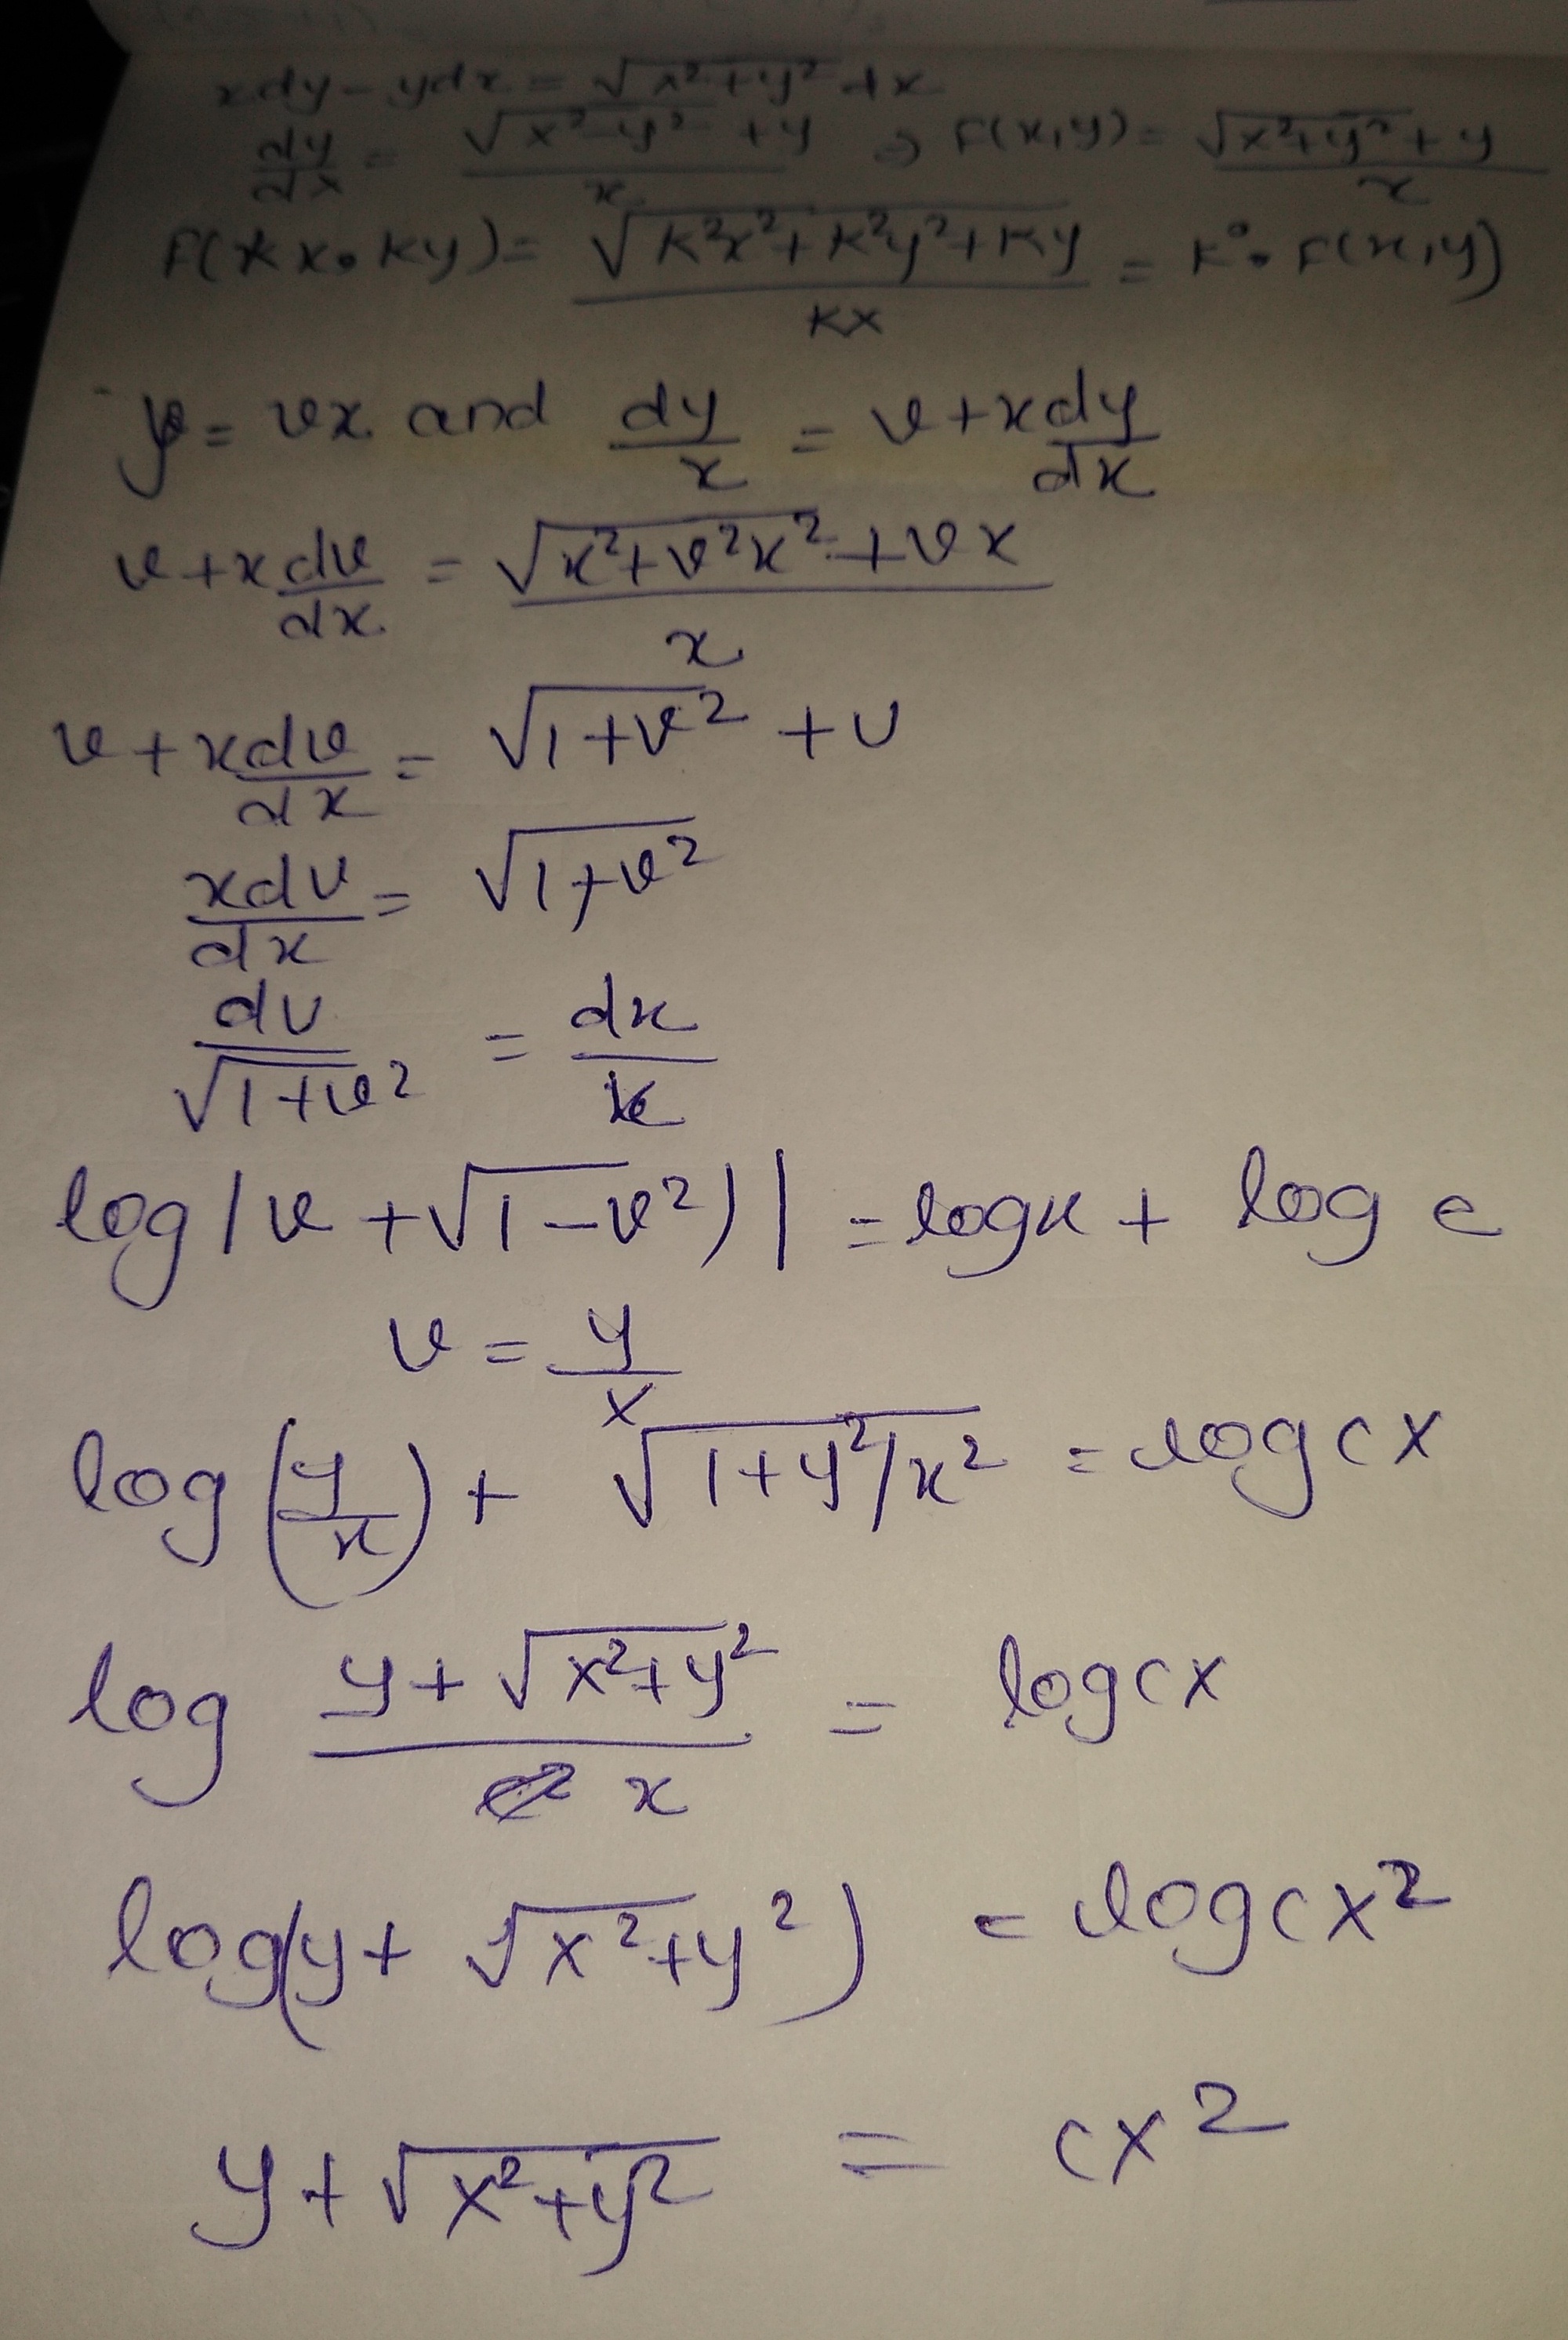 xdy - ydx = √x²+y² dx
dy/dx = √x²-y² + y / x ⇒ F(x,y) = √x²+y² + y / x
F(kx.ky) = √k²x²+k²y²+ky / kx = k°. F(x,y)
y = vx and dy/x = v+x dy/dx
v+x dv/dx = √x²+v²x² + vx / x
v + x dv/dx = √1+v² + v
xdv/dx = √1+v²
dv/√1+v² = dx/x
log|v+√1-v²)| = logx + log c
v = y/x
log(y/x) + √1+y²/x² = log cx
log y+√x²+y² / x = log cx
log(y+ √x²+y²) = log cx²
y+√x²+y² = cx²